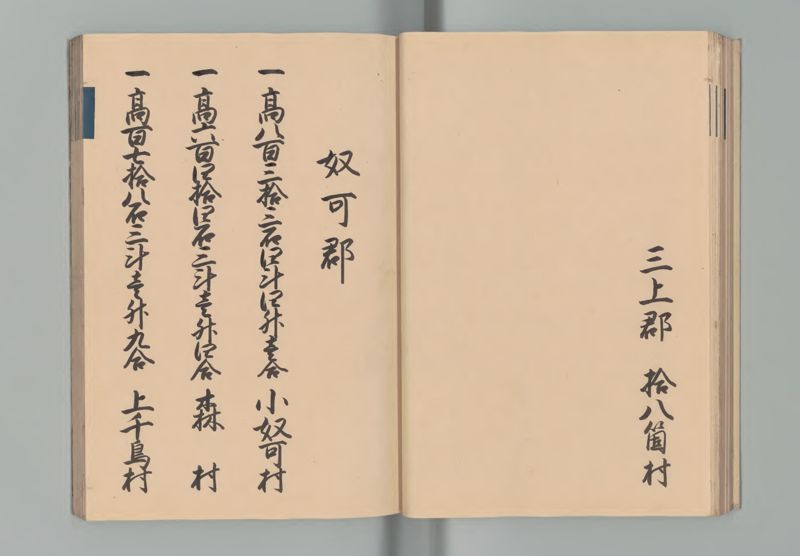 三上郡 拾八箇村
奴可郡
一高八百三拾二石四斗四升壹合 小奴可村
一高六百四拾四石三斗壹升四合 森村
一高百七拾八石三斗壹升九合 上千鳥村